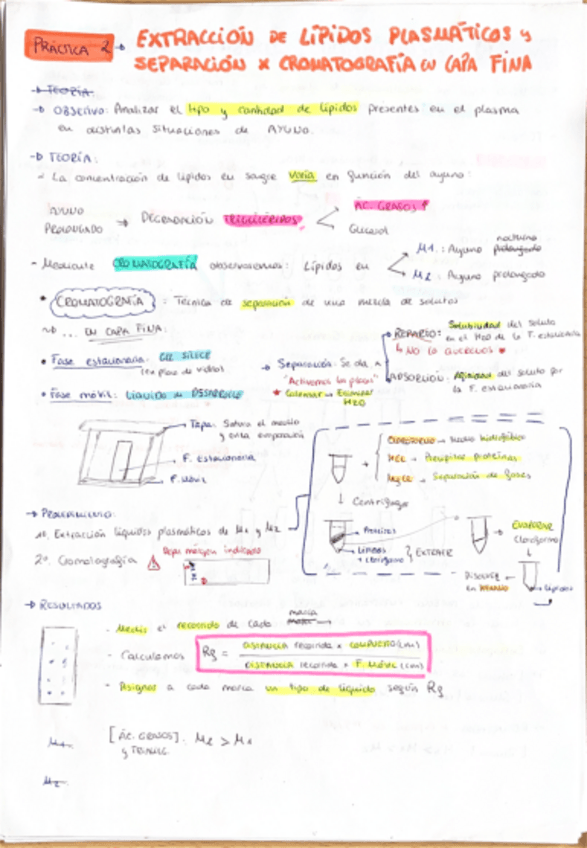 PRÁCTICA 2 → EXTRACCIÓN DE LÍPIDOS PLASMÁTICOS y
SEPARACIÓN x CROMATOGRAFÍA en CAPA FINA
→ TEORÍA
→ OBJETIVO: Analizar el tipo y cantidad de lípidos presentes en el plasma
en distintas situaciones de AYUNO.
→ TEORÍA:
- La concentración de lípidos en sangre varía en función del ayuno:
AYUNO
PROLONGADO → DEGRADACIÓN TRIGLICÉRIDOS
ÁC. GRASOS ↑
Glicerol
- Mediante CROMATOGRAFÍA observaremos: Lípidos en
M1: Ayuno prolongado nocturno
M2: Ayuno prolongado
• CROMATOGRAFÍA: Técnica de separación de una mezcla de solutos
... EN CAPA FINA:
• Fase estacionaria: GEL SÍLICE
(en placa de vidrio)
• Fase móvil: Líquido de DESARROLLO
→ Separación: Se da x
"Activamos la placa"
* Calentar → Eliminar
H2O
• REPARTO: Solubilidad del soluto
en el H2O de la F. estacionaria
↳ NO LO QUEREMOS
ADSORCIÓN: Afinidad del soluto por
la F. estacionaria
Tapa: Satura el medio
y evita evaporación
F. Estacionaria
F. Móvil
CLOROFORMO → Medio hidrofóbico
HCl → Precipitar proteínas
MgCl2 → Separación de fases
↓ Centrifugar
Proteínas
Lípidos
+ cloroformo
EXTRAER
EVAPORAR
Cloroformo
Disolver
en HEXANO
Lípidos
→ PROCEDIMIENTO:
1º. Extracción líquidos plasmáticos de M1 y M2
2º. Cromatografía
Dejar margen indicado
→ RESULTADOS
- Medir el recorrido de cada marca
- Calculamos Rf = DISTANCIA recorrida x COMPUESTO (cm)
DISTANCIA recorrida x F. MÓVIL (cm)
- Asignar a cada marca un tipo de líquido según Rf
M1
[ÁC. GRASOS]: M2 > M1
y TRIGLIC.
M2